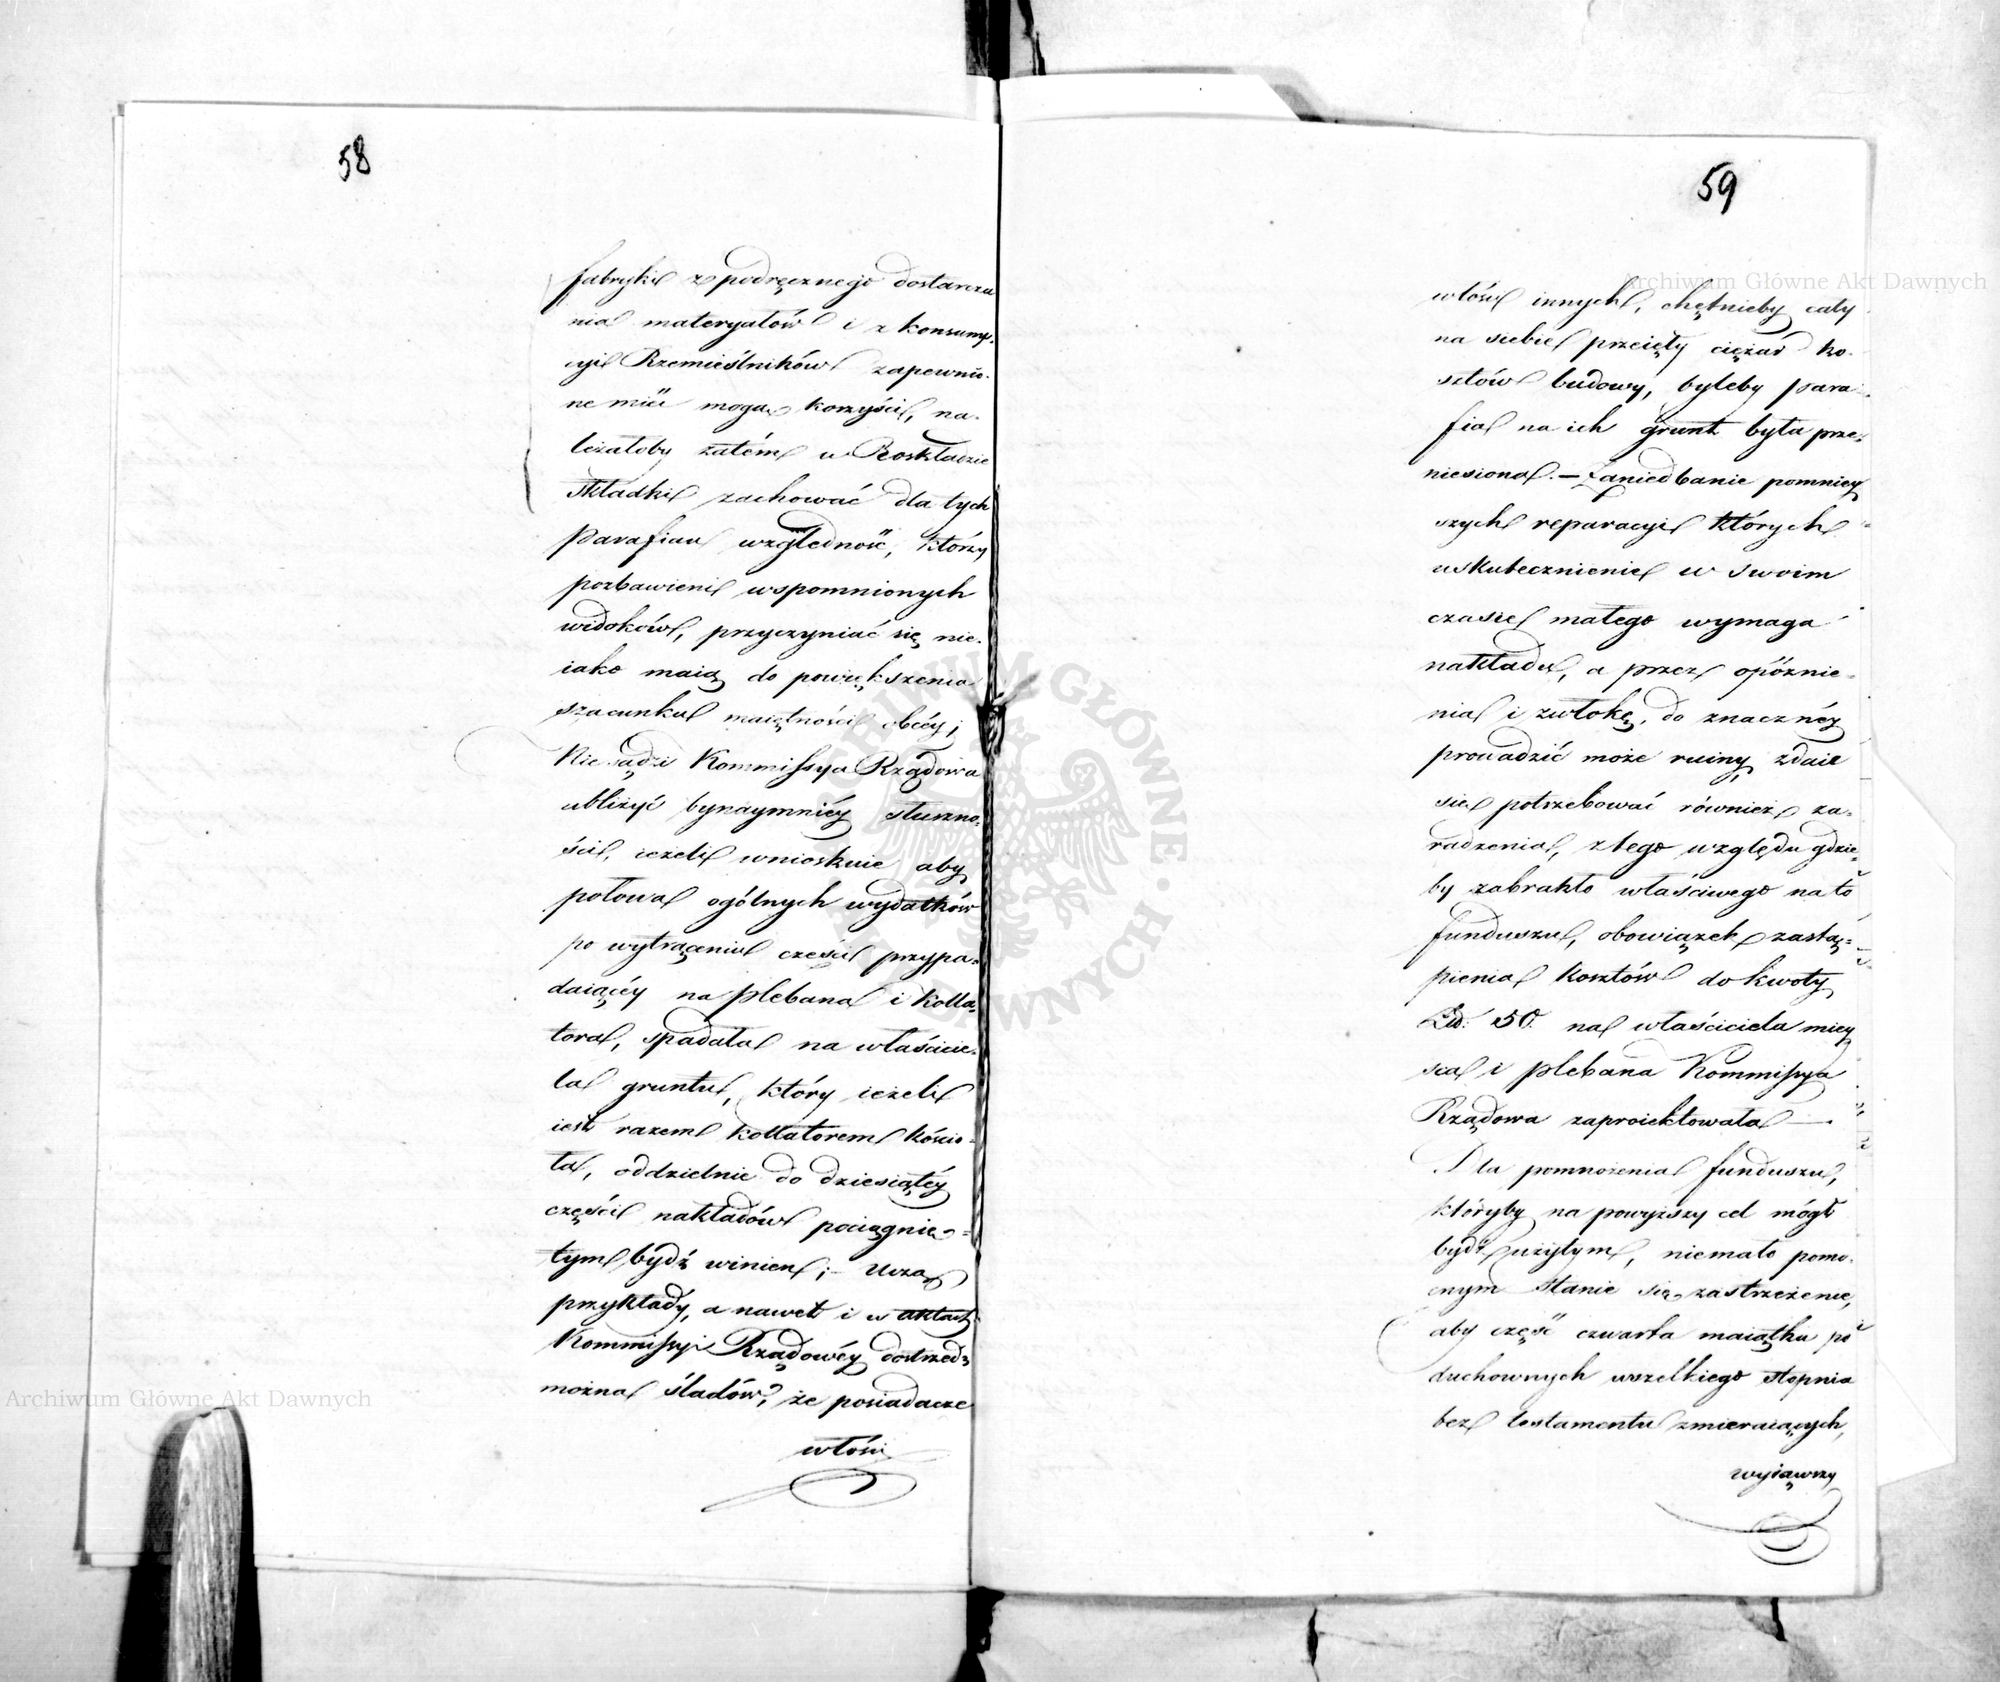 58
fabryki z podręcznego dostarcza
nia materyałów i z konsump-
cyi Rzemieślników zapewnio-
ne mieć mogą korzyści, na-
leżałoby zatém w Roskładzie
składki zachować dla tych
Parafian względność, którzy
pozbawieni wspomnionych
widoków, przyczyniać się nie-
iako maią do powiększenia
szacunku maiętności obcéy;
Nie sądzi Kommissya Rządowa
ubliżyć bynaymniéy słuszno-
ści, ieżeli wnioskuie aby
połowa ogólnych wydatków
po wytrąceniu części przypa-
daiącéy na plebana i kolla-
tora, spadała na właścicie-
la gruntu, który ieżeli
iest razem kollatorem kościo-
ła, oddzielnie do dziesiątéy
części nakładów pociągnię-
tym bydź winien;
przykłady, a nawet i w aktach
Kommissyi Rządowéy dostrzedz
można śladów, że posiadacze
włości
59
włości innych, chętnieby cały
na siebie przeięły ciężar ko-
sztów budowy, byleby para-
fia na ich grunt była prze-
niesiona. — Zaniedbanie pomniey
szych reparacyi których
uskutecznienie w swoim
czasie małego wymaga
nakładu, a przez opóźnie-
nia i zwłokę, do znacznéy
prowadzić może ruiny, zdaie
się potrzebować również za-
radzenia, z tego względu gdzie-
by zabrakło właściwego na to
funduszu, obowiązek zastą-
pienia kosztów do kwoty
Zł: 50. na właściciela miey
sca i plebana Kommissya
Rządowa zaproiektowała —.
Dla pomnożenia funduszu,
któryby na powyższy cel mógł
bydź użytym, niemało pomo-
cnym stanie się zastrzeżenie,
aby część czwarta maiątku po
duchownych wszelkiego stopnia
bez testamentu zmieraiących,
wyiąwszy
Archiwum Główne Akt Dawnych
Archiwum Główne Akt Dawnych
ARCHIWUM GŁÓWNE AKT DAWNYCH